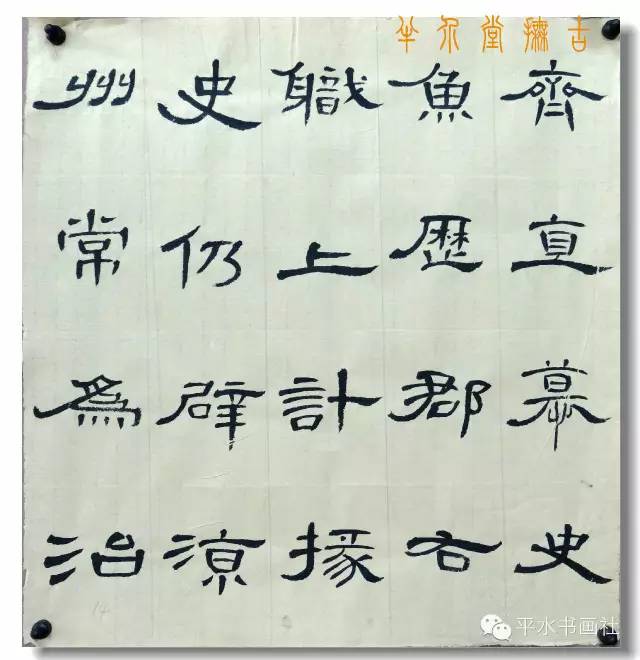 半尒堂撫古
齊直慕史
魚歷郡右
職上計掾
史仍辟涼
州常爲治
14
平水书画社